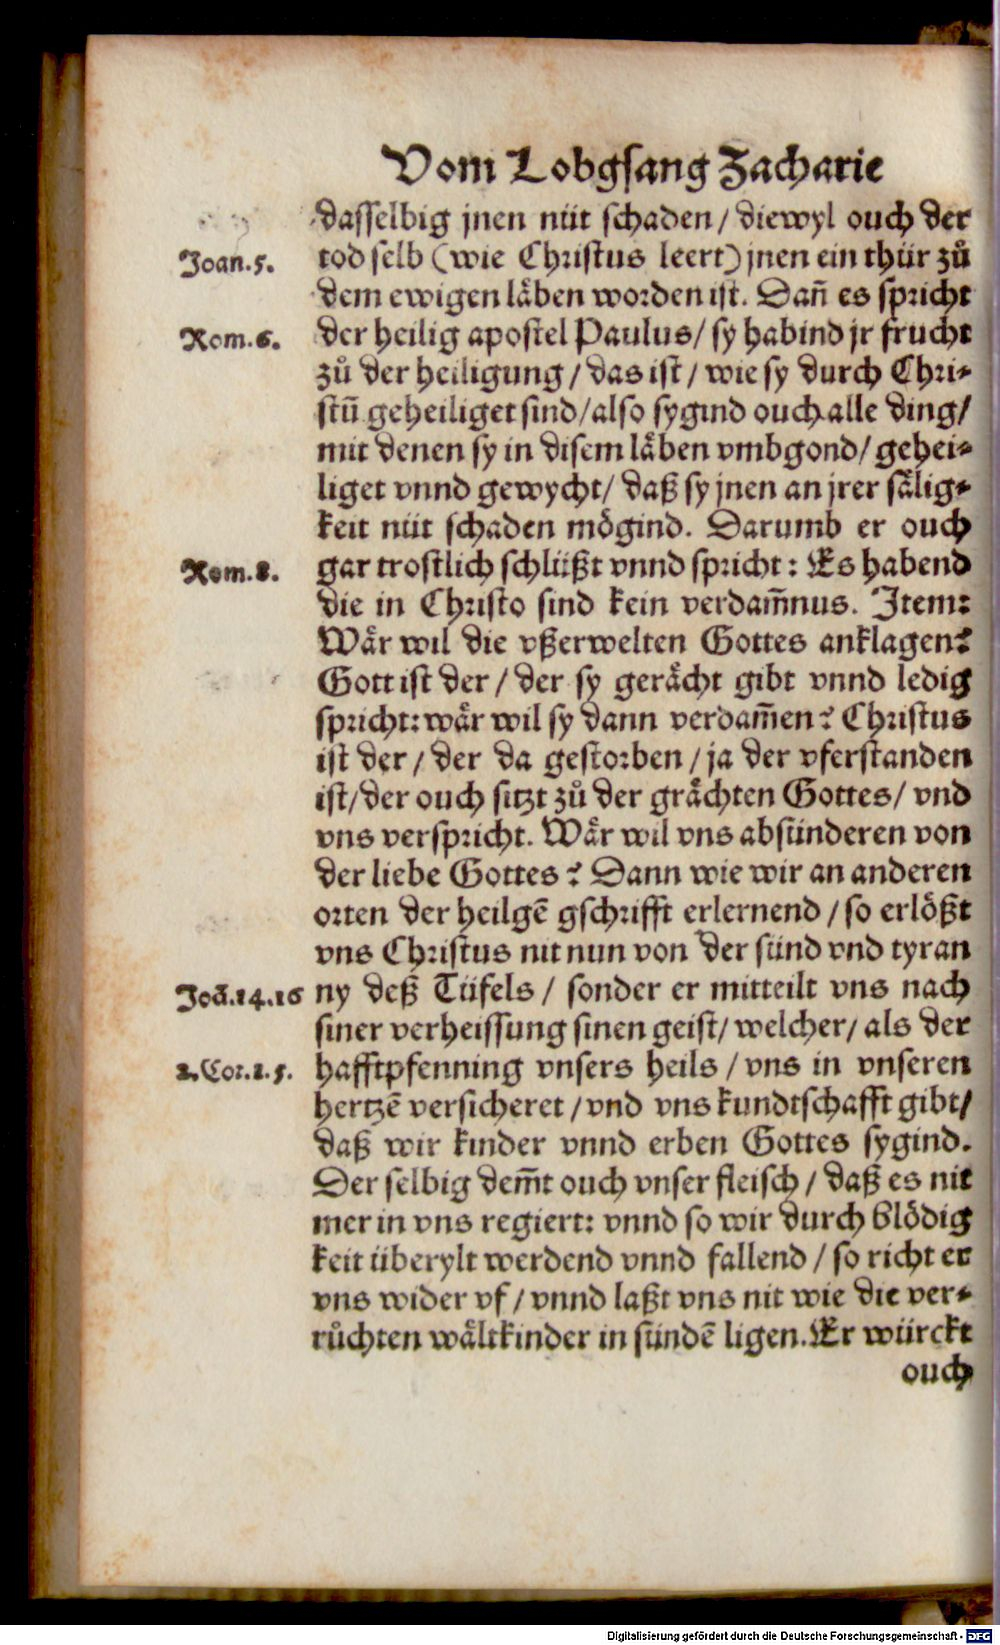 Vom Lobgsang Zacharie
dasselbig jnen nüt schaden / diewyl ouch der
Joan.5.
tod selb (wie Christus leert) jnen ein thür zů
dem ewigen läben worden ist. Dañ es spricht
Rom.6.
der heilig apostel Paulus / sy habind jr frucht
zů der heiligung / das ist / wie sy durch Chri⸗
stū geheiliget sind / also sygind ouch alle ding /
mit denen sy in disem läben vmbgond / gehei⸗
liget vnnd gewycht / daß sy jnen an jrer sälig⸗
keit nüt schaden mögind. Darumb er ouch
Rom.8.
gar trostlich schlüßt vnnd spricht: Es habend
die in Christo sind kein verdam̄nus. Jtem:
Wär wil die vßerwelten Gottes anklagen?
Gott ist der / der sy gerächt gibt vnnd ledig
spricht: wär wil sy dann verdam̄en? Christus
ist der / der da gestorben / ja der vferstanden
ist / der ouch sitzt zů der grächten Gottes / vnd
vns verspricht. Wär wil vns absünderen von
der liebe Gottes? Dann wie wir an anderen
orten der heilgē gschrifft erlernend / so erlößt
vns Christus nit nun von der sünd vnd tyran
Joā.14.16
ny deß Tüfels / sonder er mitteilt vns nach
siner verheissung sinen geist / welcher / als der
2.Cor.1.5.
hafftpfenning vnsers heils / vns in vnseren
hertzē versicheret / vnd vns kundtschafft gibt /
daß wir kinder vnnd erben Gottes sygind.
Der selbig dem̄t ouch vnser fleisch / daß es nit
mer in vns regiert: vnnd so wir durch blödig
keit überylt werdend vnnd fallend / so richt er
vns wider vf / vnnd laßt vns nit wie die ver⸗
růchten wältkinder in sündē ligen. Er würckt
ouch
Digitalisierung gefördert durch die Deutsche Forschungsgemeinschaft - DFG